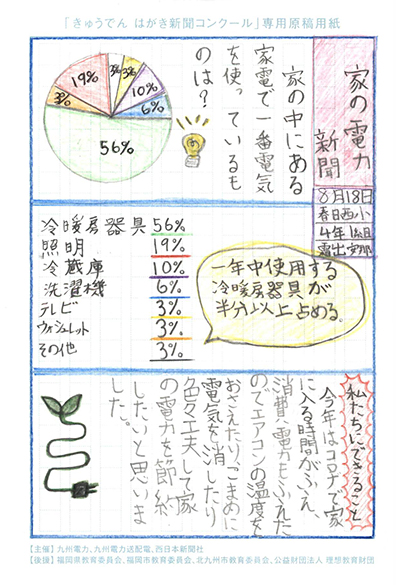 「きゅうでん はがき新聞コンクール」専用原稿用紙
家の電力
新聞
8月18日
春日西小
4年1組
家の中にある
家電で一番電気
を使っているも
のは？
3%
3%
10%
6%
56%
3%
19%
冷暖房器具 56%
照明 19%
冷蔵庫 10%
洗濯機 6%
テレビ 3%
ウォシュレット 3%
その他 3%
一年中使用する
冷暖房器具が
半分以上占める。
私たちにできること
今年はコロナで家
に入る時間がふえ、
消費電力もふえた
のでエアコンの温度を
おさえたりこまめに
電気を消したり
色々工夫して家
の電力を節約
したいと思いま
した。
【主催】九州電力、九州電力送配電、西日本新聞社
【後援】福岡県教育委員会、福岡市教育委員会、北九州市教育委員会、公益財団法人 理想教育財団